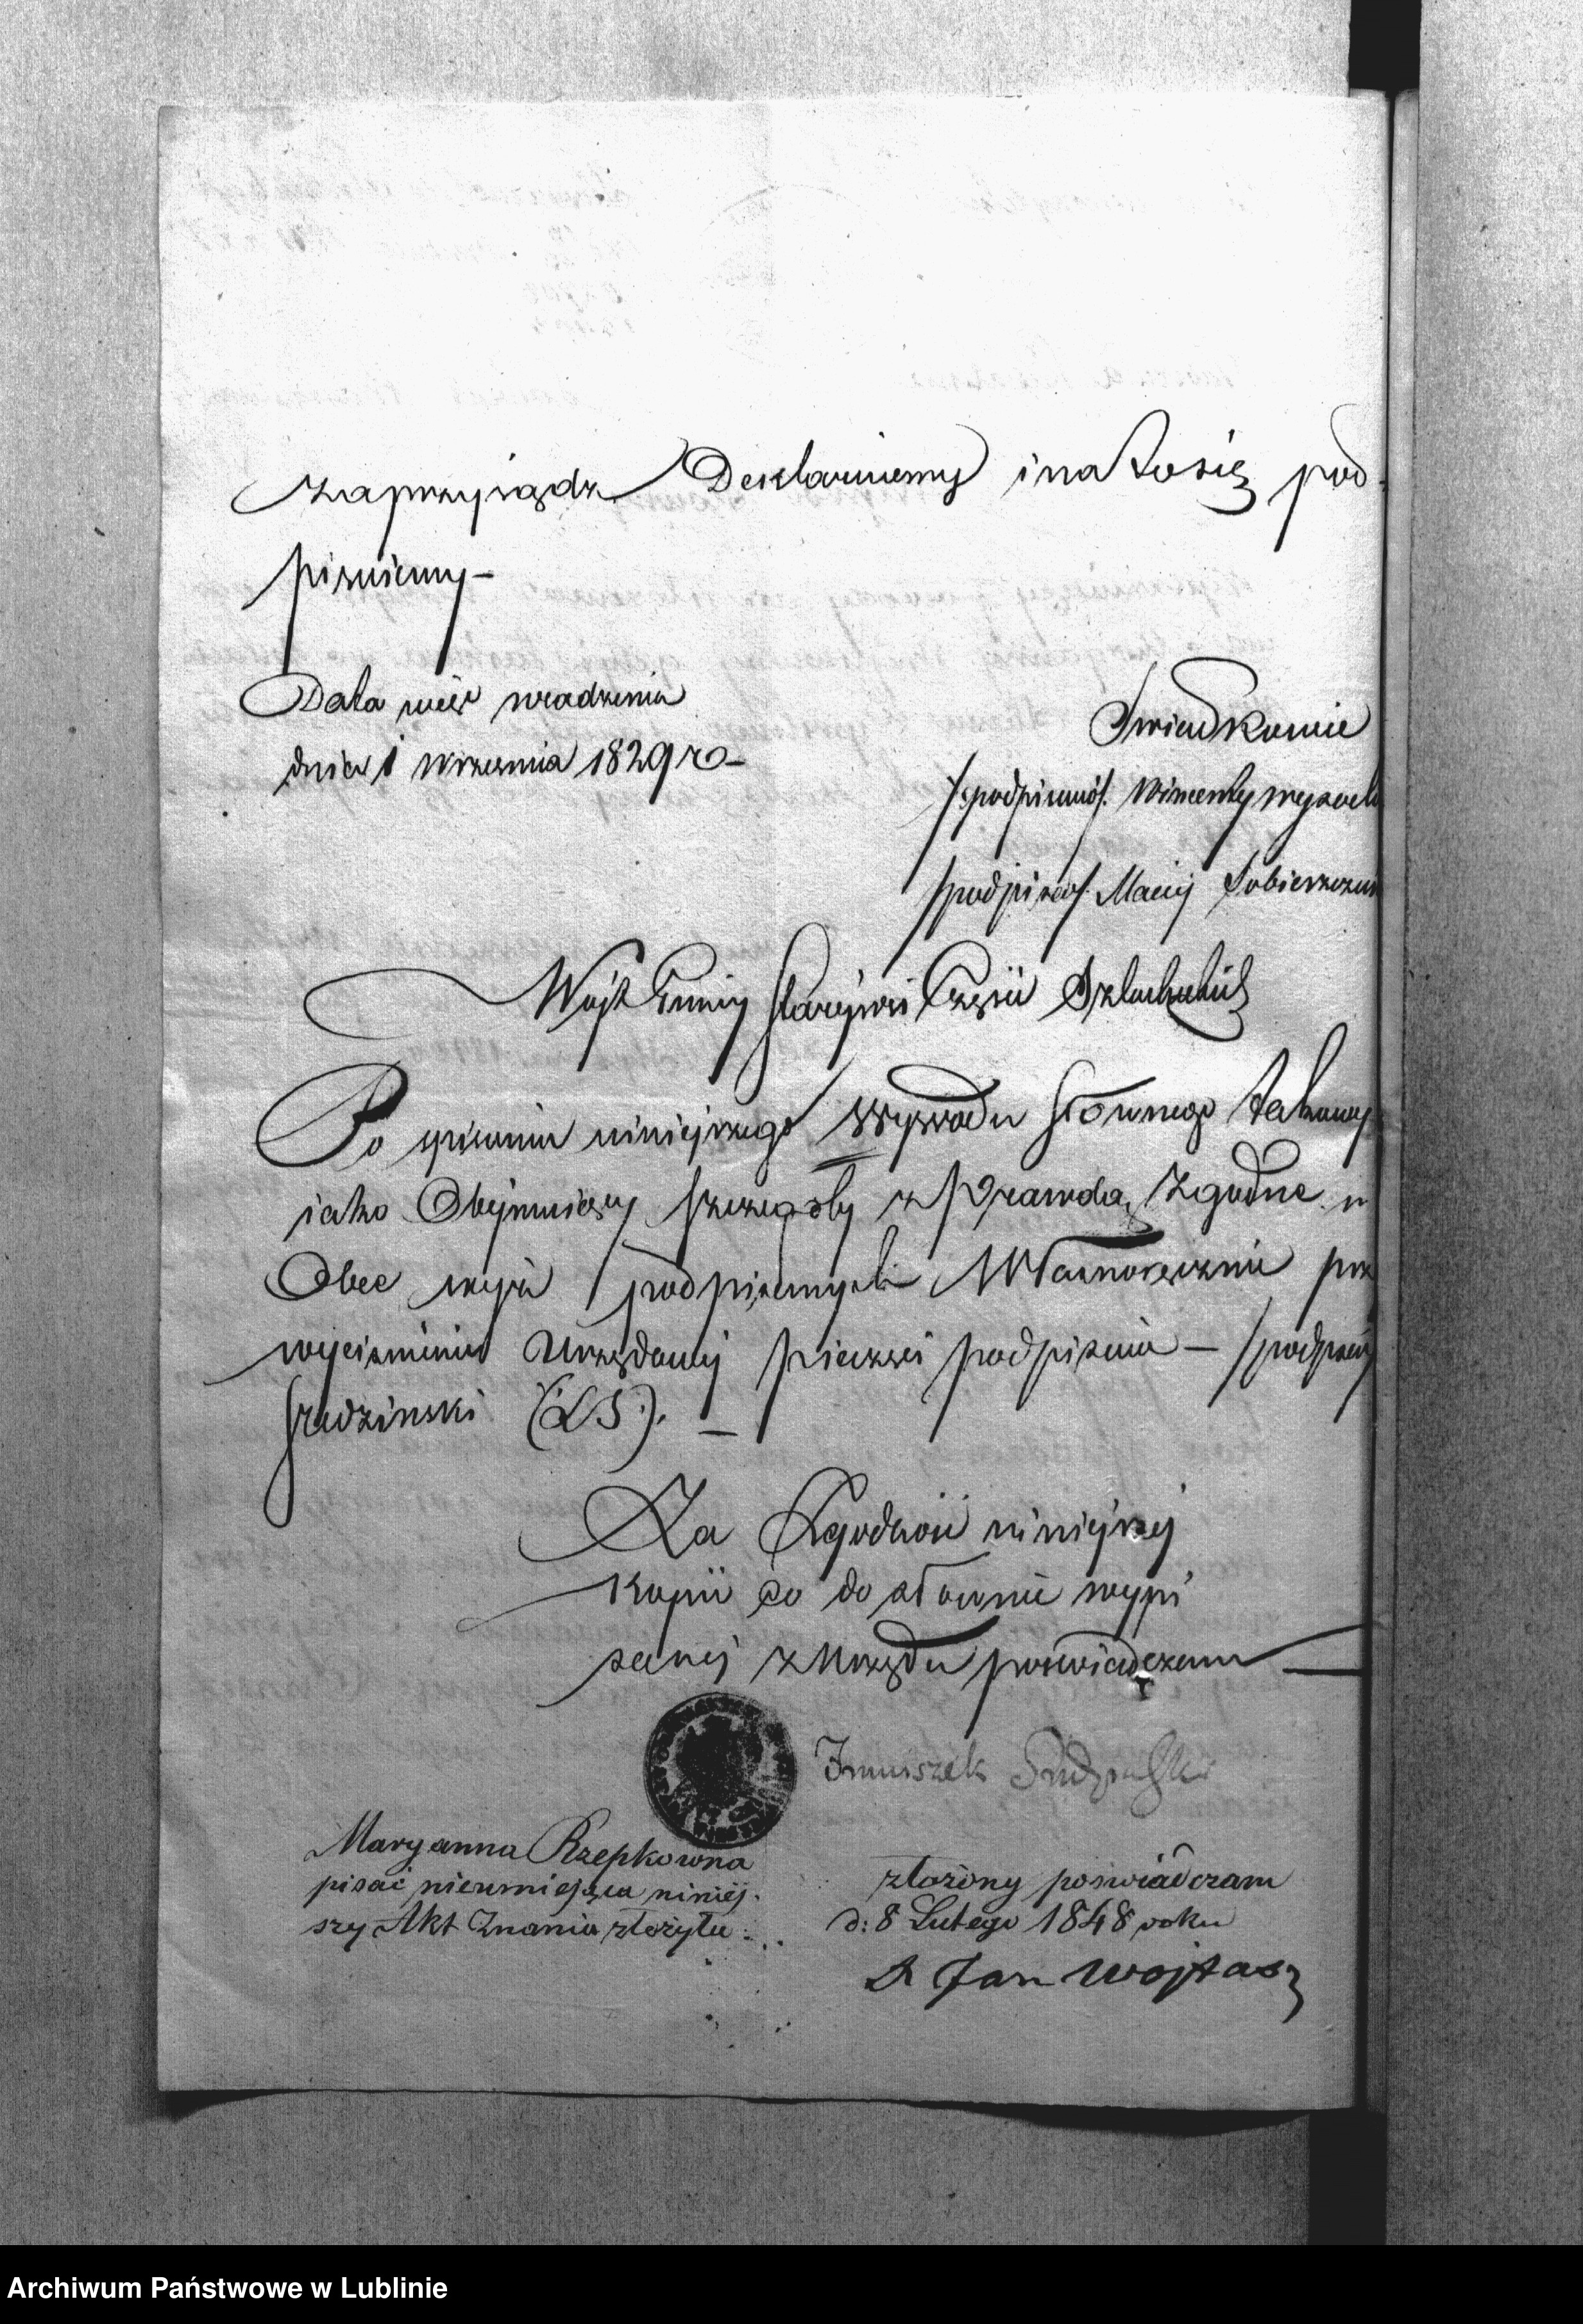 zaprzysiądz Deklarujemy i na to się pod-
pisujemy –
Data wieś urodzenia
dnia 1 Września 1829 ro –
Świadkowie
/:podpisanò/. Wincenty Wysock
/podpisa/. Maciej Sobieszczu
Wójt Gminy Stareywsi Częsci Szlacheckich
Po spisaniu niniejszego Wywodu Słownego takowy
iako Obejmuiący szczegoły z Prawdą Zgodne w
Obec wyżej podpisanych Własnoręcznie prz
wyciśnieniu Urzędowej pieczęci podpisuie – /podpisany
Grudzinski (:L S:). –
Za Zgodność niniejszej
Kopii co do słownie wypi
sanej z Urzędu poświadczam
Franciszek Grudzinski
Maryanna Rzepkowna
pisać nieumiejąca niniej-
szy Akt Znania złożyła
złożony poświadczam
d: 8 Lutego 1848 roku
X Jan Wojtasz
Archiwum Państwowe w Lublinie